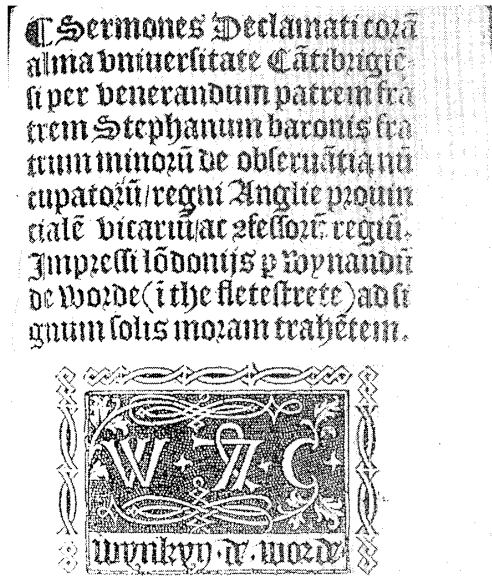 ¶ Sermones Declamati corā
alma vniuersitate Cātibrigiē-
si per venerandum patrem fra
trem Stephanum baronis fra
trum minorū de obseruātia nū
cupatorū/regni Anglie prouin
cialē vicariū/ac ꝯfessorū regiū.
Impressi lōdonijs ꝑ wynandū
de worde (ī the fletestrete) ad si
gnum solis moram trahētem.
W C
wynkyn · de · worde